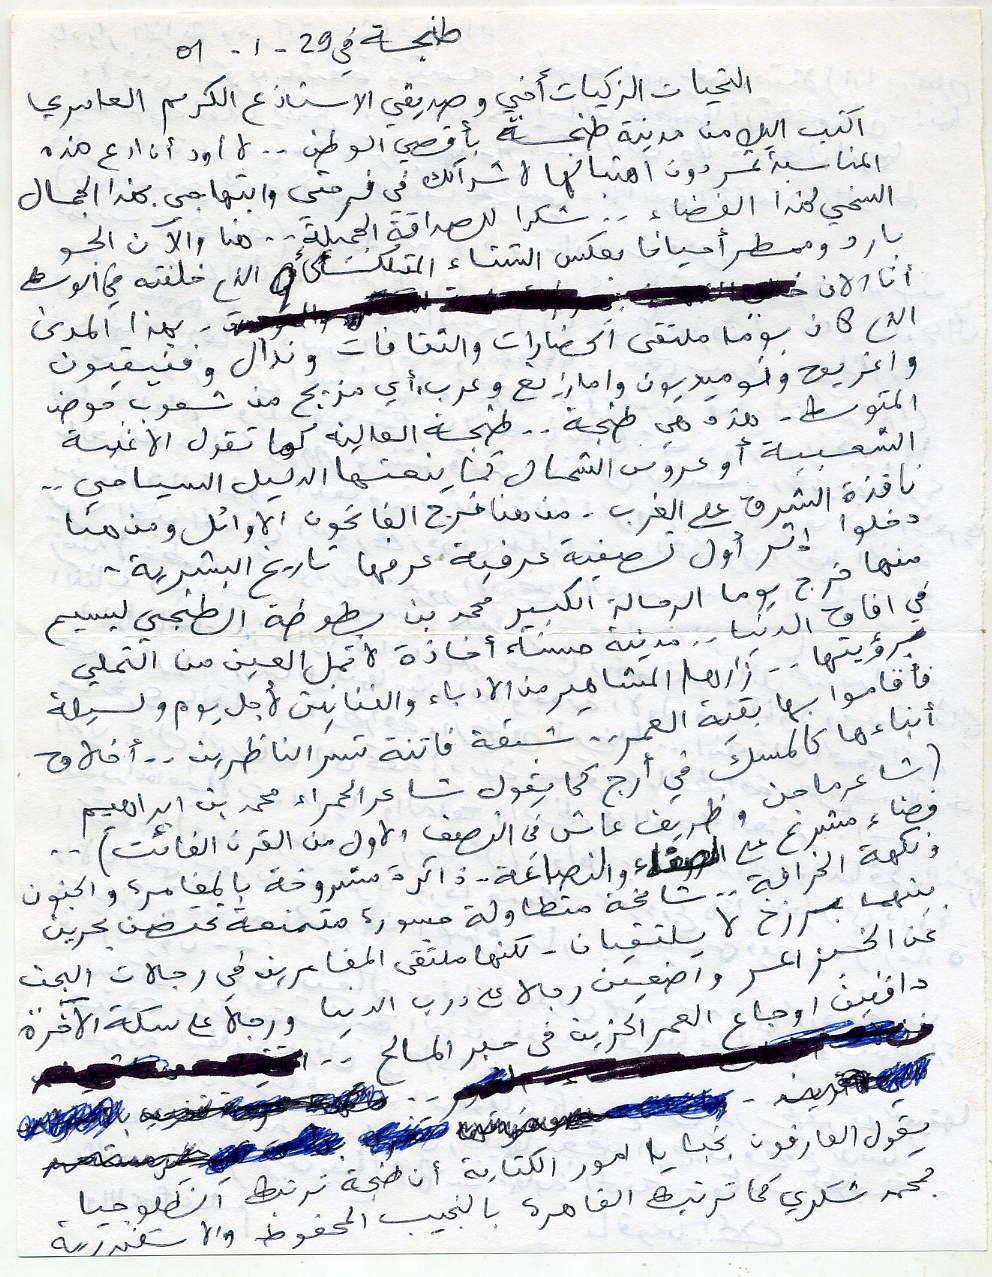 طنجة في 29 - 1 - 01
التحيات الزكيات أخي وصديقي الاستاذ ع الكرم العامري
اكتب اليك من مدينة طنجة بأقصى الوطن .. لا أود أن ادع هذه
المناسبة تمر دون اهتبالها لاشراكك في فرحتي وابتهاجي بهذا الجمال
السخي لهذا الفضاء .. شكرا للصداقة الجميلة .. هنا والآن الجو
بارد وممطر أحيانا بعكس الشتاء الذي خلفته في
أنا الآن بهذا المدى
الذي كان يوما ملتقى الحضارات والثقافات وندال وفنيقيون
واغريق ونوميديون وامازيغ وعرب، أي مزيج من شعوب حوض
المتوسط - هذه هي طنجة .. طنجة العالية كما تقول الاغنية
الشعبية أو عروس الشمال كما ينعتها الدليل السياحي ..
نافذة الشرق على الغرب .. من هنا خرج الفاتحون الاوائل ومن هنا
دخلوا إثر أول تصفية عرقية عرفها تاريخ البشرية -
منها خرج يوما الرحالة الكبير محمد بن بطوطة الطنجي ليسيح
في افاق الدنيا .. مدينة حسناء أخاذة لا تمل العين من التملي
برؤيتها .. زارها المشاهير من الادباء والفنانين لأجل يوم وليلة
فأقاموا بها بقية العمر .. شبقة فاتنة تسر الناظرين .. أخلاق
أبناءها كالمسك في أرج كما يقول شاعر الحمراء محمد بن ابراهيم
(شاعر ماجن وظريف عاش في النصف الاول من القرن الفائت) ..
فضاء مشرع على والنصاعة - ذاكرة مشروخة بالمغامرة والجنون
ونكهة الخرافة .. شامخة متطاولة جسورة متمنعة تحتضن بحرين
بينهما برزخ لا يلتقيان - لكنها ملتقى المغامرين في رحلات البحث
عن الخبز المر واضعين رجلا على درب الدنيا ورجلا على سكة الآخرة
دافنين اوجاع العمر الحزين في حبر المسالح ..
يقول العارفون بخبايا امور الكتابة أن طنجة ترتبط انطلوجيا
بمحمد شكري كما ترتبط القاهرة بالنجيب المحفوظ والاسكندرية